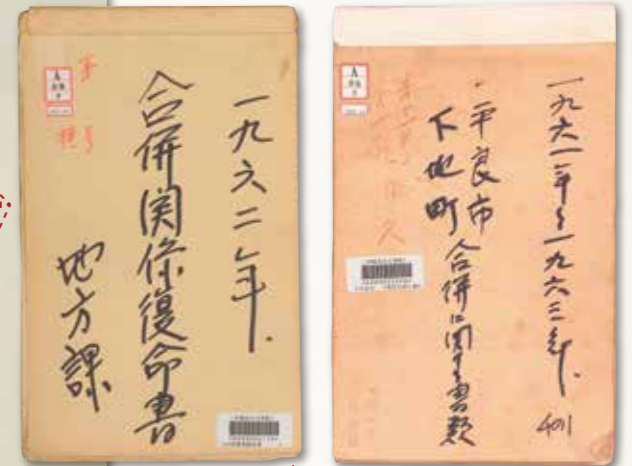 一九六二年.
合併関係復命書
地方課
一九六一年〜一九六三年.
平良市
下地町
合併に関する書類
401